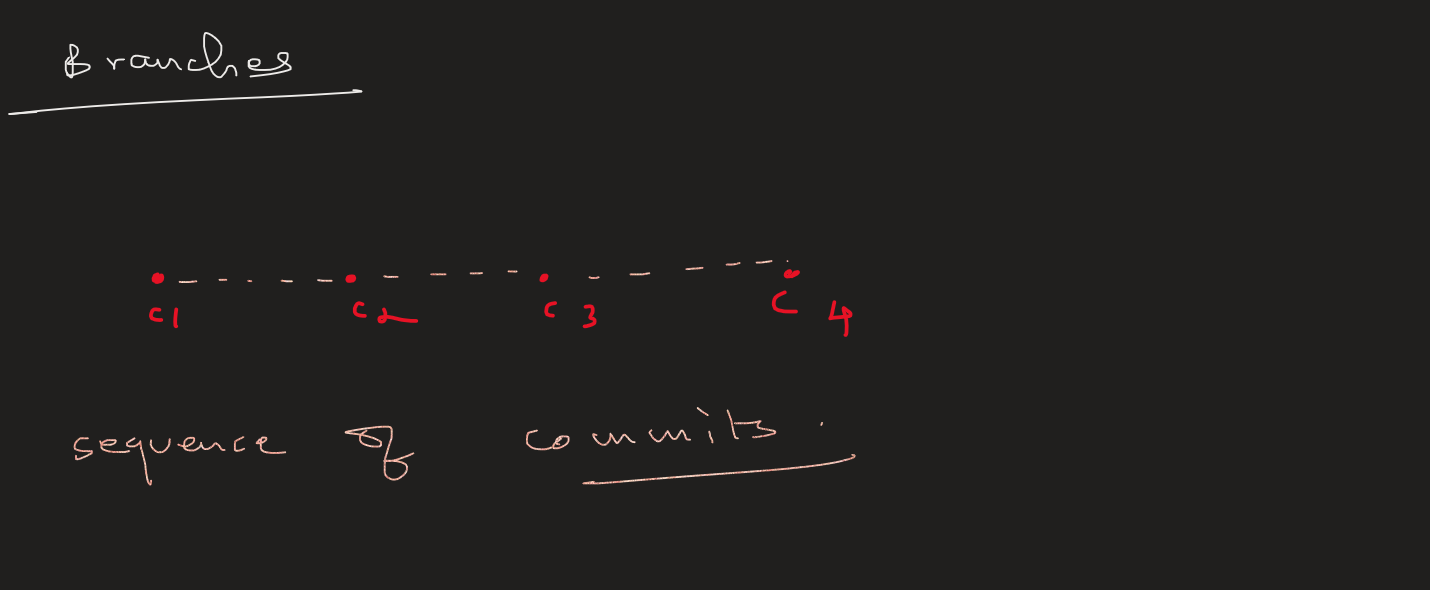 Branches
c1 c2 c3 C4
sequence of commits.